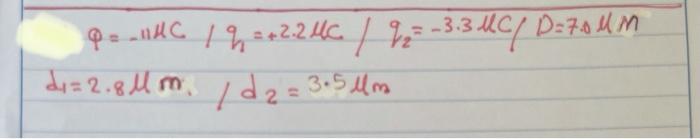 φ = -11 μC / q₁ = +2.2 μC / q₂ = -3.3 μC / D = 7.0 μm
d₁ = 2.8 μm. / d₂ = 3.5 μm